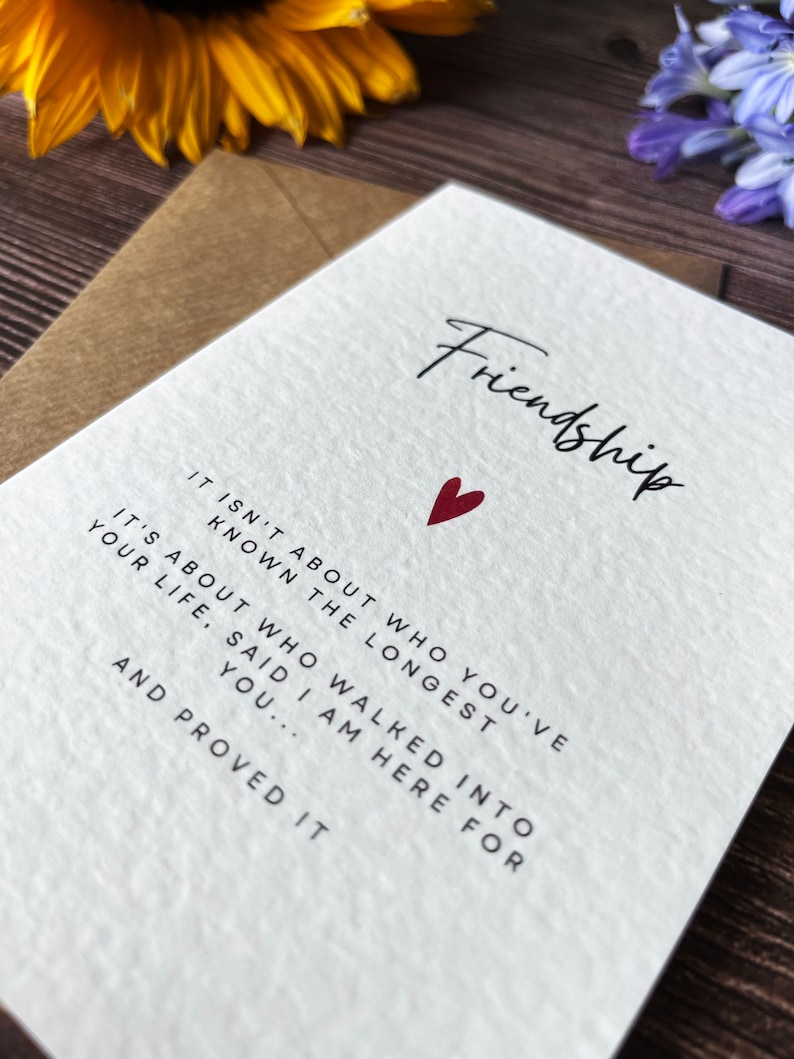 Friendship
IT ISN'T ABOUT WHO YOU'VE
KNOWN THE LONGEST
IT'S ABOUT WHO WALKED INTO
YOUR LIFE, SAID I AM HERE FOR
YOU...
AND PROVED IT